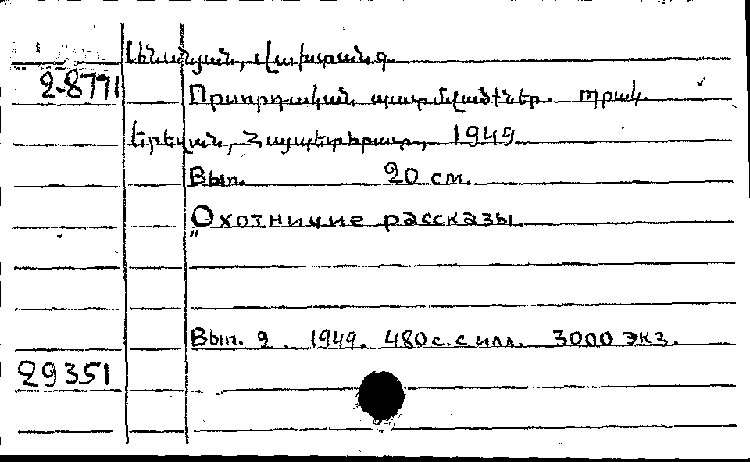 Անանյան, Վախթանգ.
2-8771
Որսորդական պատմվածքներ. պրակ
Երեվան, Հայպետհրատ, 1949
Вып. 20 см.
"Охотничие рассказы
Вып. 2. 1949. 480 с. с илл. 3000 экз.
29351